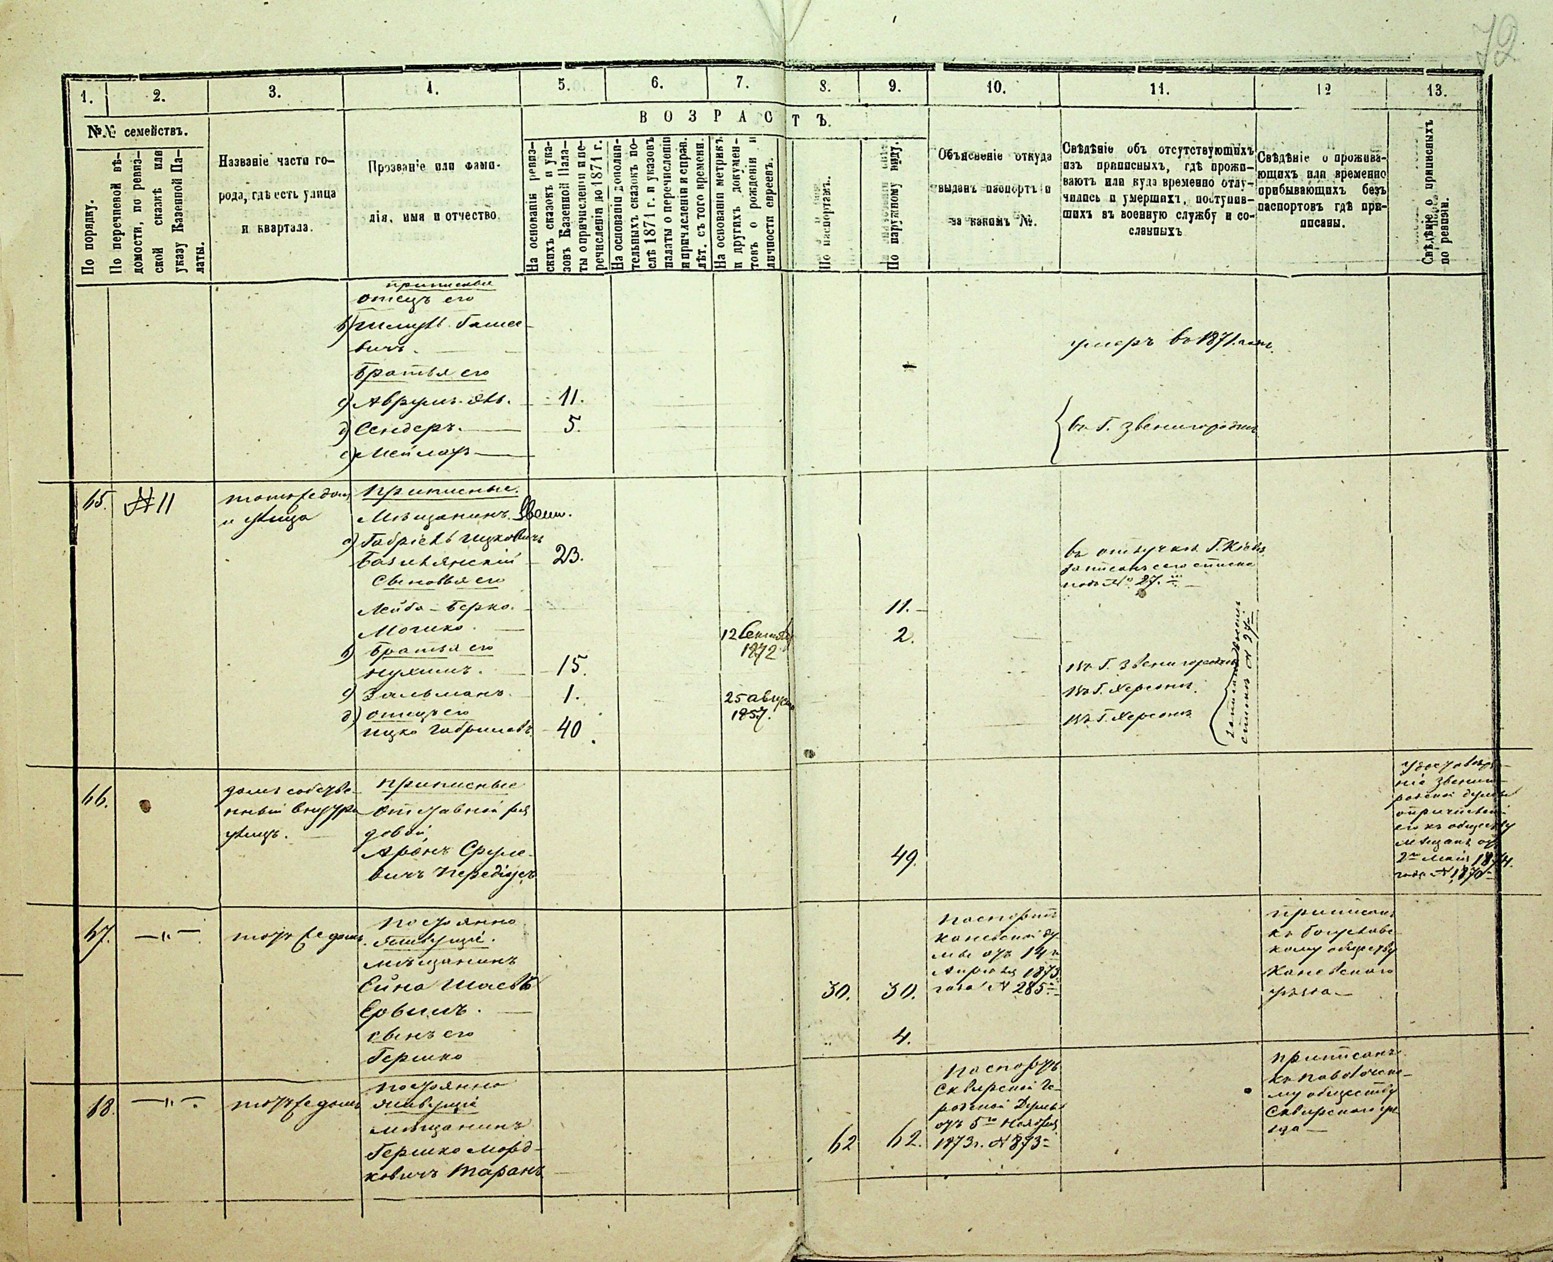 72
1.
2.
3.
4.
5.
6.
7.
8.
9.
10.
11.
12
13.
№№ семействъ.
По порядку.
По перечневой вѣ-
домости, по ревиз-
ской сказкѣ или
указу Казенной Па-
латы.
Названіе части го-
рода, гдѣ есть улица
и квартала.
Прозваніе или фами-
лія, имя и отчество.
ВОЗРАСТЪ.
На основаніи ревиз-
скихъ сказокъ и ука-
зовъ Казенной Пала-
ты о причисленіи и пе-
речисленіи до 1871 г.
На основаніи дополни-
тельныхъ сказокъ по-
слѣ 1871 г. и указовъ
палаты о перечисленіи
и причисленіи и справ.
лѣт. съ того времени.
На основаніи метрикъ
и другихъ докумен-
товъ о рожденіи и
личности евреевъ.
По паспортамъ.
По наружному виду.
Объясненіе откуда
выданъ паспортъ и
за какимъ №.
Свѣдѣніе объ отсутствующихъ
изъ приписныхъ, гдѣ прожи-
ваютъ или куда временно отлу-
чились и умершихъ, поступив-
шихъ въ военную службу и со-
сланныхъ.
Свѣдѣніе о прожива-
ющихъ или временно
прибывающихъ безъ
паспортовъ гдѣ при-
писаны.
Свѣдѣніе о приписныхъ
по ревизіи.
приписные
отецъ его
вичъ.
умеръ въ 1871 году.
братья его
Аврумъ
11.
Сендеръ.
5.
въ Г. Звенигородки
Мейлахъ
65.
№ 11
тотъ же домъ
и улица
Приписные.
Мѣщанинъ Звен.
Габріель Ицковичъ
23.
въ отлучкѣ Г. Кіевъ
подъ № 27.
сыновья его
Лейба-Берко.
11.
Мошко.
12 Сентября
1872
2.
братья его
Нухимъ.
15.
въ Г. Звенигородки
Зальманъ.
1.
25 августа
1857.
въ Г. Херсонѣ.
отецъ его
Ицко Габріилевъ.
40
въ Г. Херсонѣ
66.
домъ собстве-
нный внутри
улицъ.
Приписные
отставной ря
довой,
Аронъ Срулe-
вичъ
49.
2го Маія 1874.
года № 1870
67.
—"—
тотъ же домъ.
Постоянно
живущіе.
мѣщанинъ
сынъ его
Гершко
30.
30.
4.
Паспортъ
каневской Ду
мы отъ 14го
Апрѣля 1873
года № 285
приписанъ
къ Богуславс-
кому обществу
Каневскаго
уѣзда
68.
—"—
тотъ же домъ
Постоянно
живущіе
мѣщанинъ
Гершко Морд-
ковичъ Таранъ
62
62.
Паспортъ
Сквирской Го-
родской Думы
отъ 5го Ноября
1873г. № 873
приписанъ
къ Паволочско-
му обществу
Сквирскаго уѣ
зда